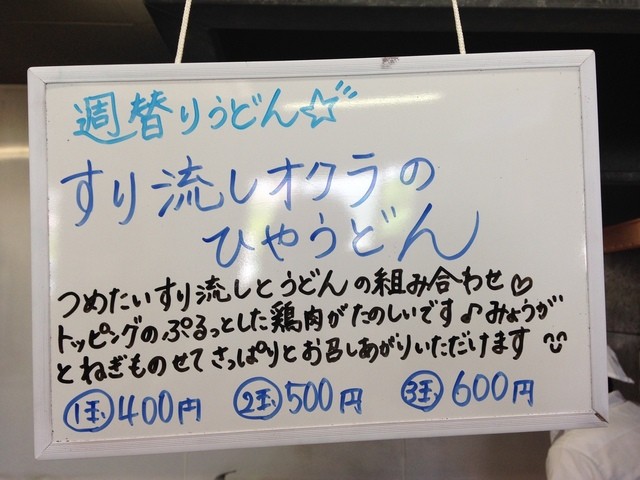 週替りうどん☆
すり流しオクラの
ひやうどん
つめたいすり流しとうどんの組み合わせ♡
トッピングのぷるっとした鶏肉がたのしいです♪みょうが
とねぎものせてさっぱりとお召しあがりいただけます
1玉 400円 2玉 500円 3玉 600円